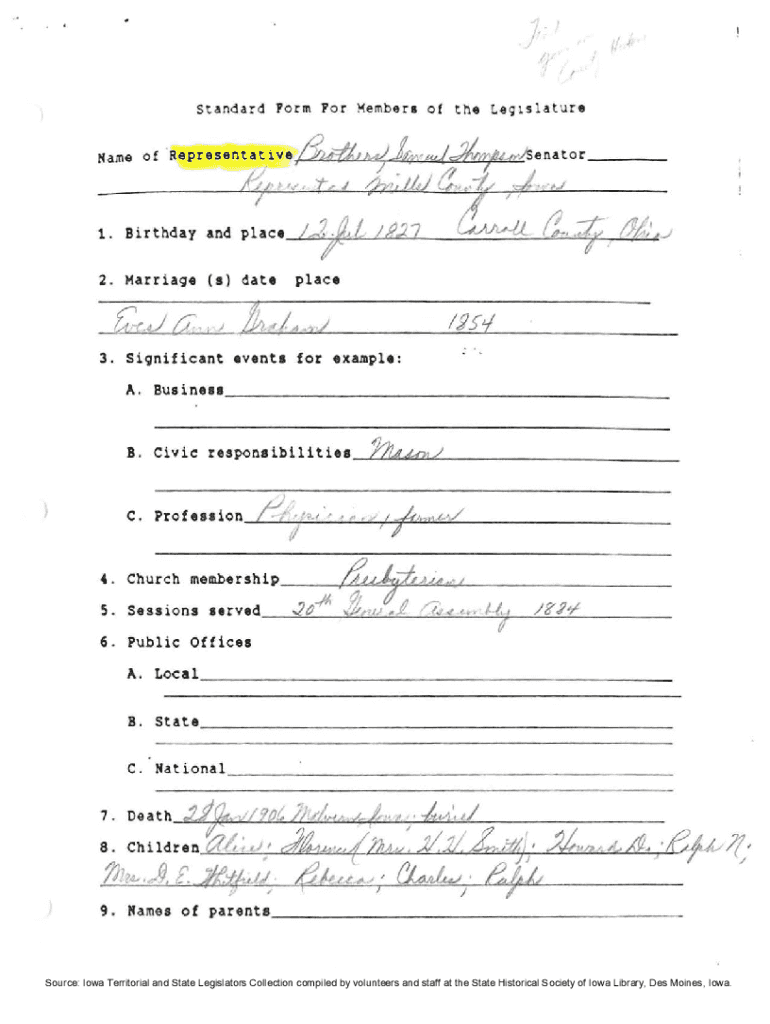 Standard Form For Members of the Legislature
Name of Representative Brothers, Samuel Thompson Senator
Represented Mills County, Iowa
1. Birthday and place 12 Jul 1827 Carroll County, Ohio
2. Marriage (s) date place
Eva Ann Graham 1854
3. Significant events for example:
A. Business
B. Civic responsibilities Mason
C. Profession Physician, farmer
4. Church membership Presbyterian
5. Sessions served 20th General Assembly 1884
6. Public Offices
A. Local
B. State
C. National
7. Death 28 Jan 1906 Malvern, Iowa; buried
8. Children Alice; Florence (Mrs. H. H. Smith); Howard D.; Ralph N;
Mrs. D. E. Whitfield; Rebecca; Charles; Ralph
9. Names of parents
Source: Iowa Territorial and State Legislators Collection compiled by volunteers and staff at the State Historical Society of Iowa Library, Des Moines, Iowa.